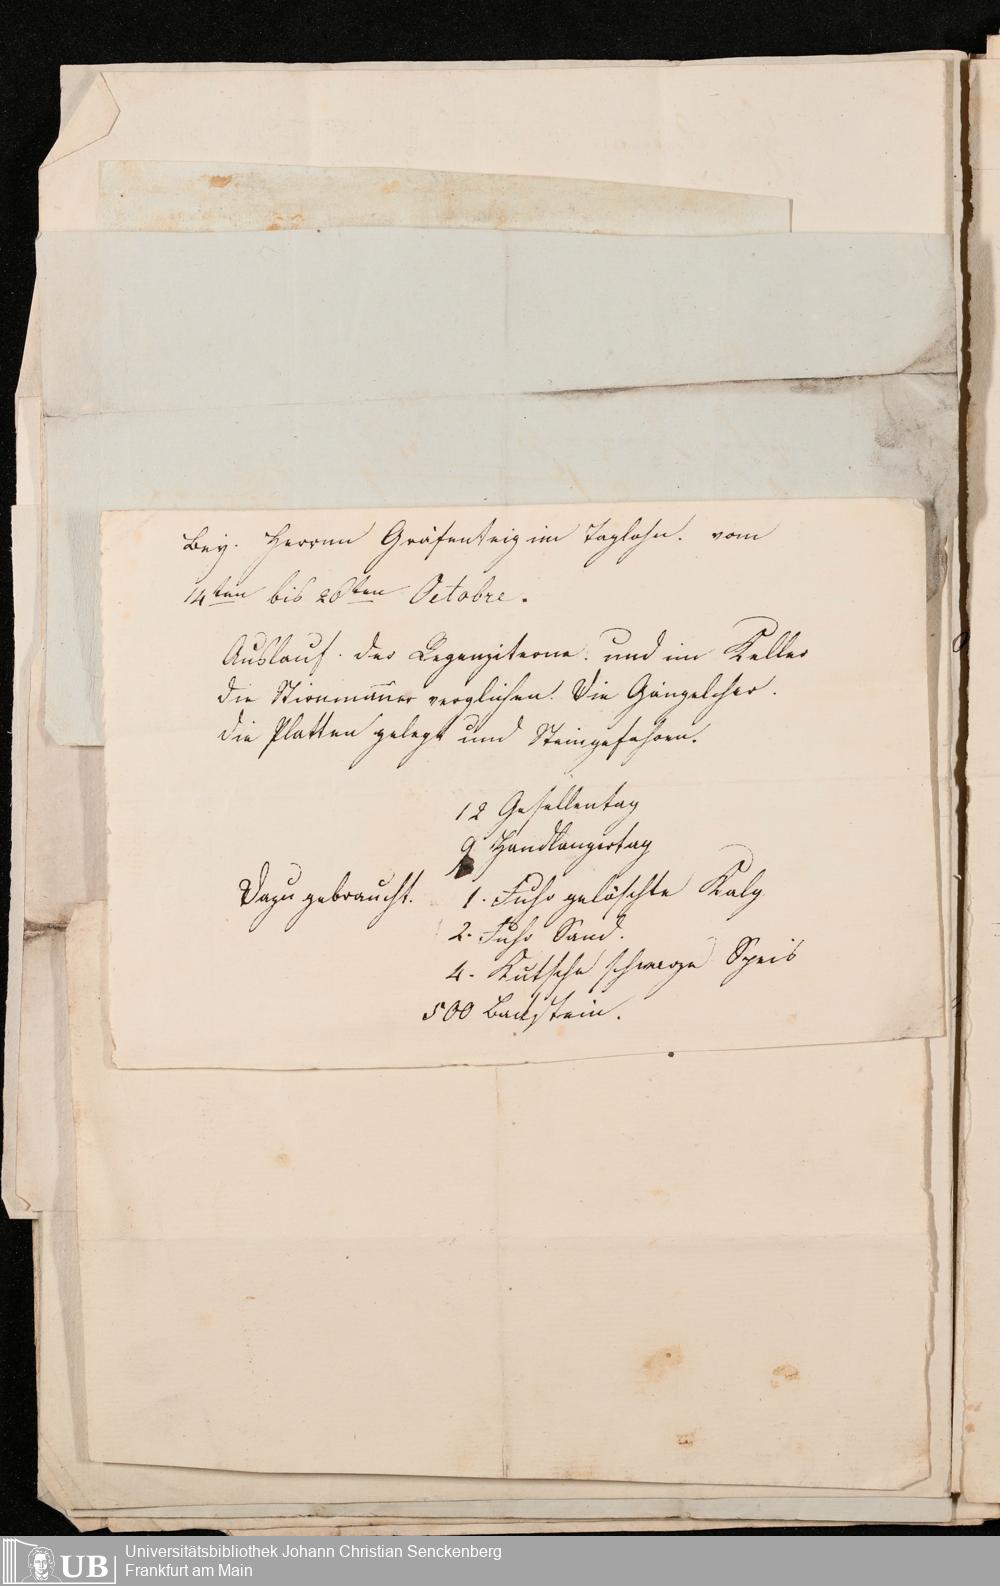 Bey. Herrnn Gräfenteig im Taglohn. vom
14ten bis 26ten Octobre.
Auslauf. der Regenziterne. und im Keller
die Stirnmauer verglichen. Die Gängelcher.
die Platten gelegt und Steingefahren.
12 Gesellentag
9 Handlangertag
Dazu gebraucht. 1. Fuhr gelöschte Kalg
2. Fuhr Sand.
4. Kutsche schwarze Speis
500 Backstein.
UB
Universitätsbibliothek Johann Christian Senckenberg
Frankfurt am Main